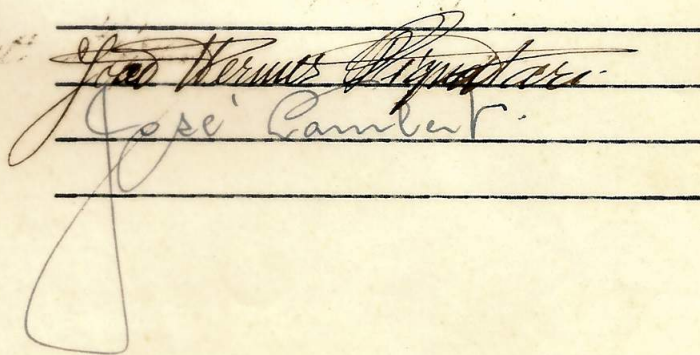 João Hermes Pignatari
José Lambert.